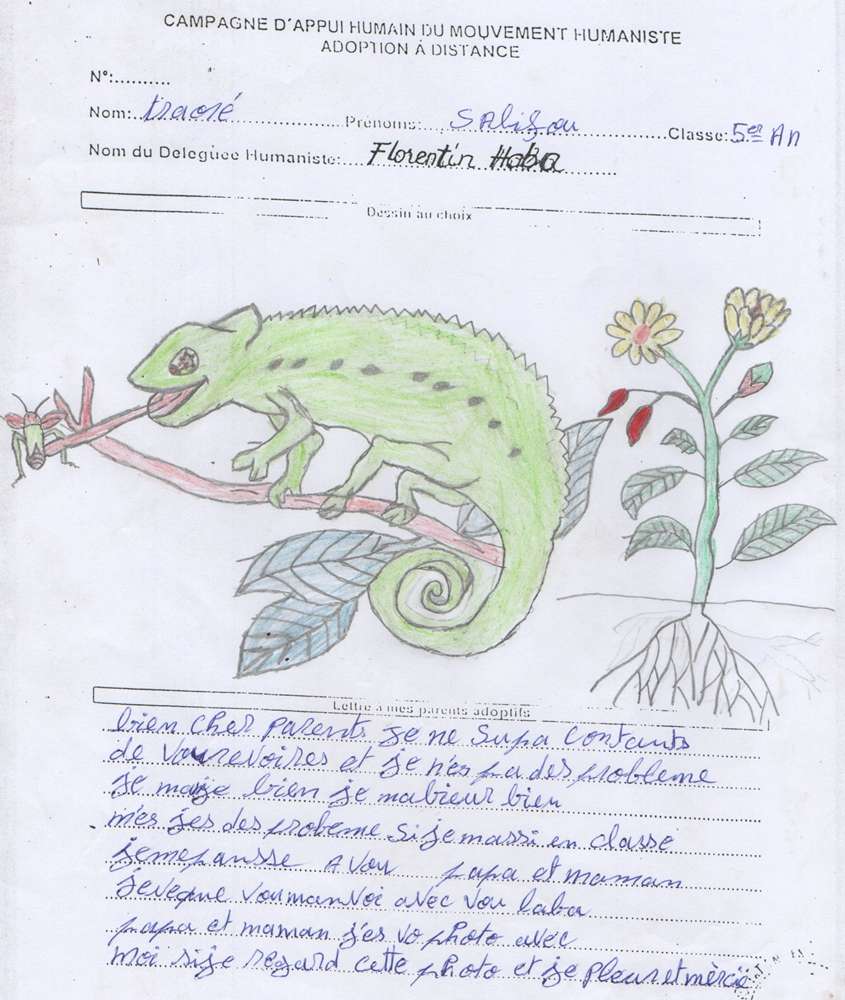 CAMPAGNE D'APPUI HUMAIN DU MOUVEMENT HUMANISTE
ADOPTION À DISTANCE
N°:..........
Nom: traoré Prénoms: SAlifou Classe: 5er An
Nom du Deleguée Humaniste: Florentin Haba
Dessin au choix
Lettre à mes parents adoptifs
bien cher parents je ne supa contants
de vourevoires et je n'es pa des probleme
je maje bien je mabieur bien
m'es jes des probeme si je massi en classe
jemepausse A vou papa et maman
jeveque voumanvoi avec vou laba
papa et maman j'es vo photo avec
moi sije regard cette photo et je pleur et mèrcie